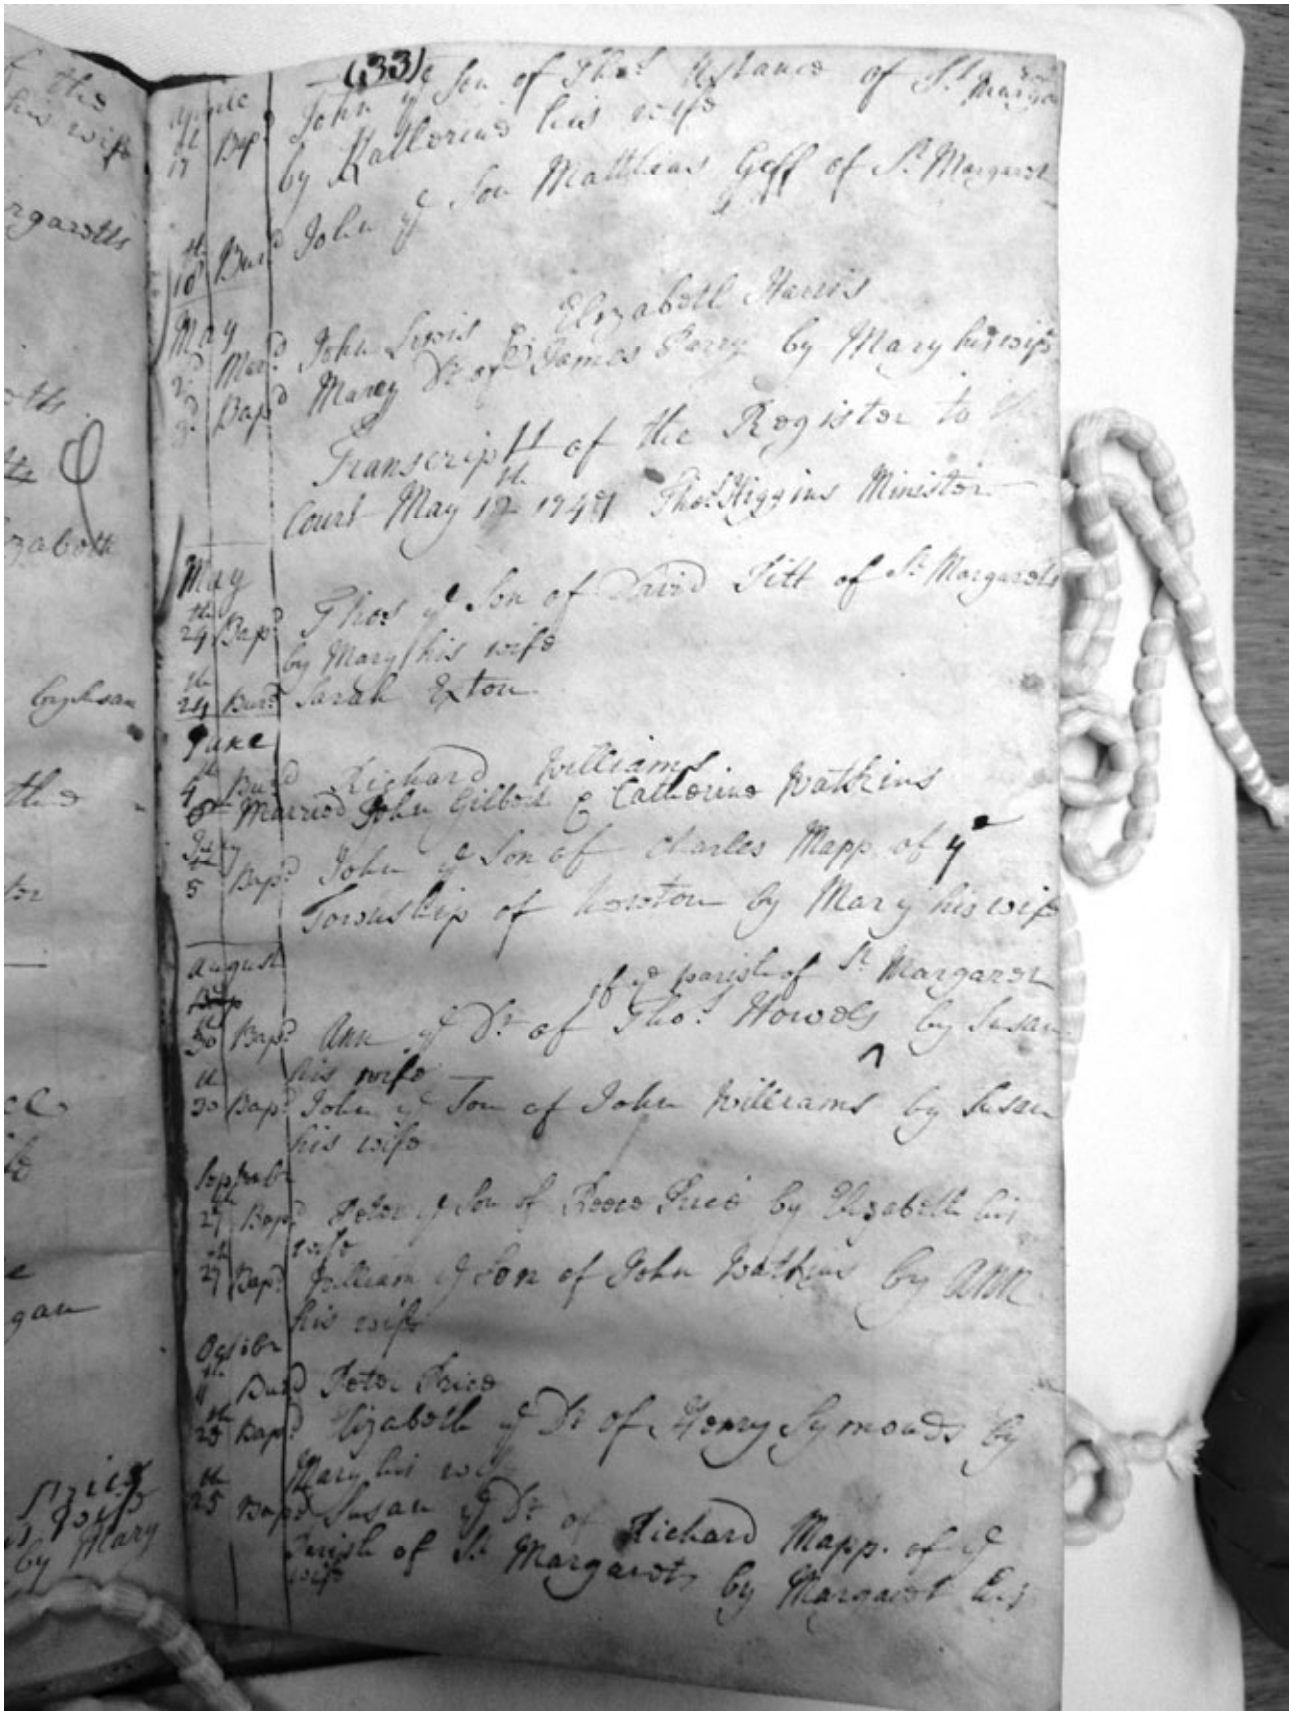 (33)
John ye Son of Thos of St Margar
17 Bapd by Katherine his wife
th
18 Burd John ye Son Matthias Goff of St Margaret
May
d Mard John Lewis & Elizabeth Harris
3d Bapd Marey Dr of James Parry by Mary his wife
Transcript of the Register to
th
Court May 12 1741 Thos Higgins Minister
May
th
24 Bapd Thos ye Son of David Pitt of St Margarets
by Mary his wife
th
24 Burd Sarah Exton
June
4 Burd Richard Williams
8th Married John Gilbert & Catherine Watkins
July
5 Bapd John ye Son of Charles Mapp of ye
Township of Newton by Mary his wife
August
Bap
of ye parish of St Margaret
th
30 Bapd Ann ye Dr of Thos Howels ^ by Susan
his wife
th
30 Bapd John ye Son of John Williams by Susan
his wife
Septembr
th
27 Bapd Peter ye Son of Reece Price by Elizabeth his
wife
th
27 Bapd William ye Son of John Watkins by Ann
his wife
October
th
11 Burd Peter Price
th
25 Bapd Elizabeth ye Dr of Henry Symonds by
Mary his wife
th
25 Bapd Susan ye Dr of Richard Mapp. of ye
Parish of St Margarets by Margaret his
wife